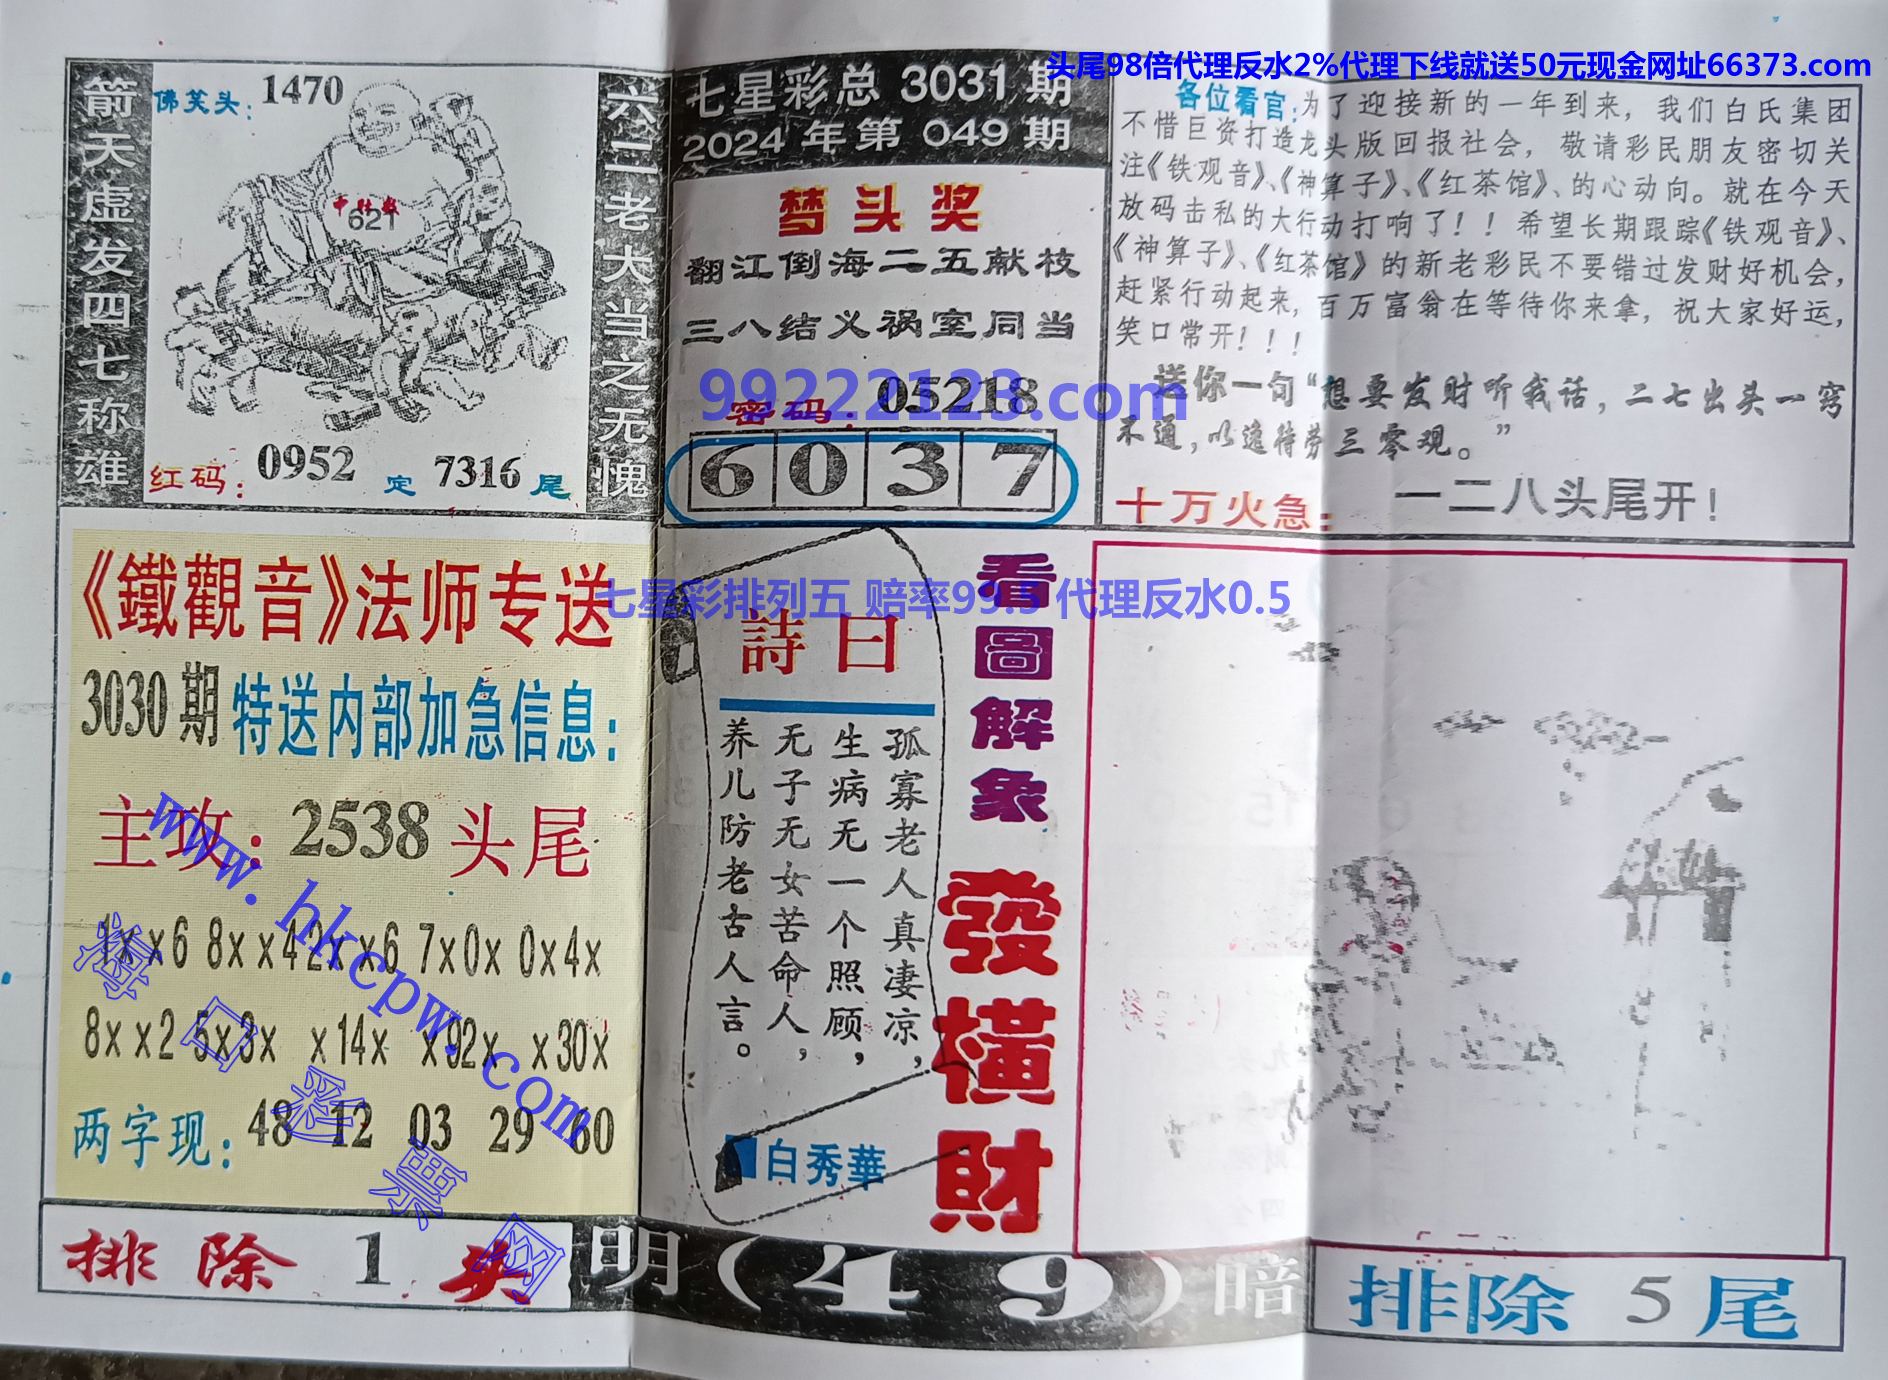 头尾98倍代理反水2%代理下线就送50元现金网址66373.com
箭天虚发四七称雄
佛笑头：1470
中肚数
621
红码：0952 定 7316 尾
六二老大当之无愧
七星彩总 3031 期
2024 年第 049 期
梦头奖
翻江倒海二五献技
三八结义祸室同当
密码：05218
99222123.com
6 0 3 7
各位看官：为了迎接新的一年到来，我们白氏集团
不惜巨资打造龙头版回报社会，敬请彩民朋友密切关
注《铁观音》、《神算子》、《红茶馆》、的心动向。就在今天
放码击私的大行动打响了！！希望长期跟踪《铁观音》、
《神算子》、《红茶馆》的新老彩民不要错过发财好机会，
赶紧行动起来，百万富翁在等待你来拿，祝大家好运，
笑口常开！！！
送你一句“想要发财听我话，二七出头一窍
不通，以逸待劳三零观。”
十万火急： 一二八头尾开！
七星彩排列五 赔率99.5 代理反水0.5
《鐵觀音》法师专送
3030 期特送内部加急信息：
主攻：2538 头尾
1xx6 8xx4 2xx6 7x0x 0x4x
8xx2 5x3x x14x x92x x30x
两字现：48 12 03 29 60
www.hkcpw.com
海口彩票网
詩曰
孤寡老人真凄凉，
生病无一个照顾，
无子无女苦命人，
养儿防老古人言。
白秀華
看圖解象
發橫財
排除 1 头
明(49)暗
排除 5 尾